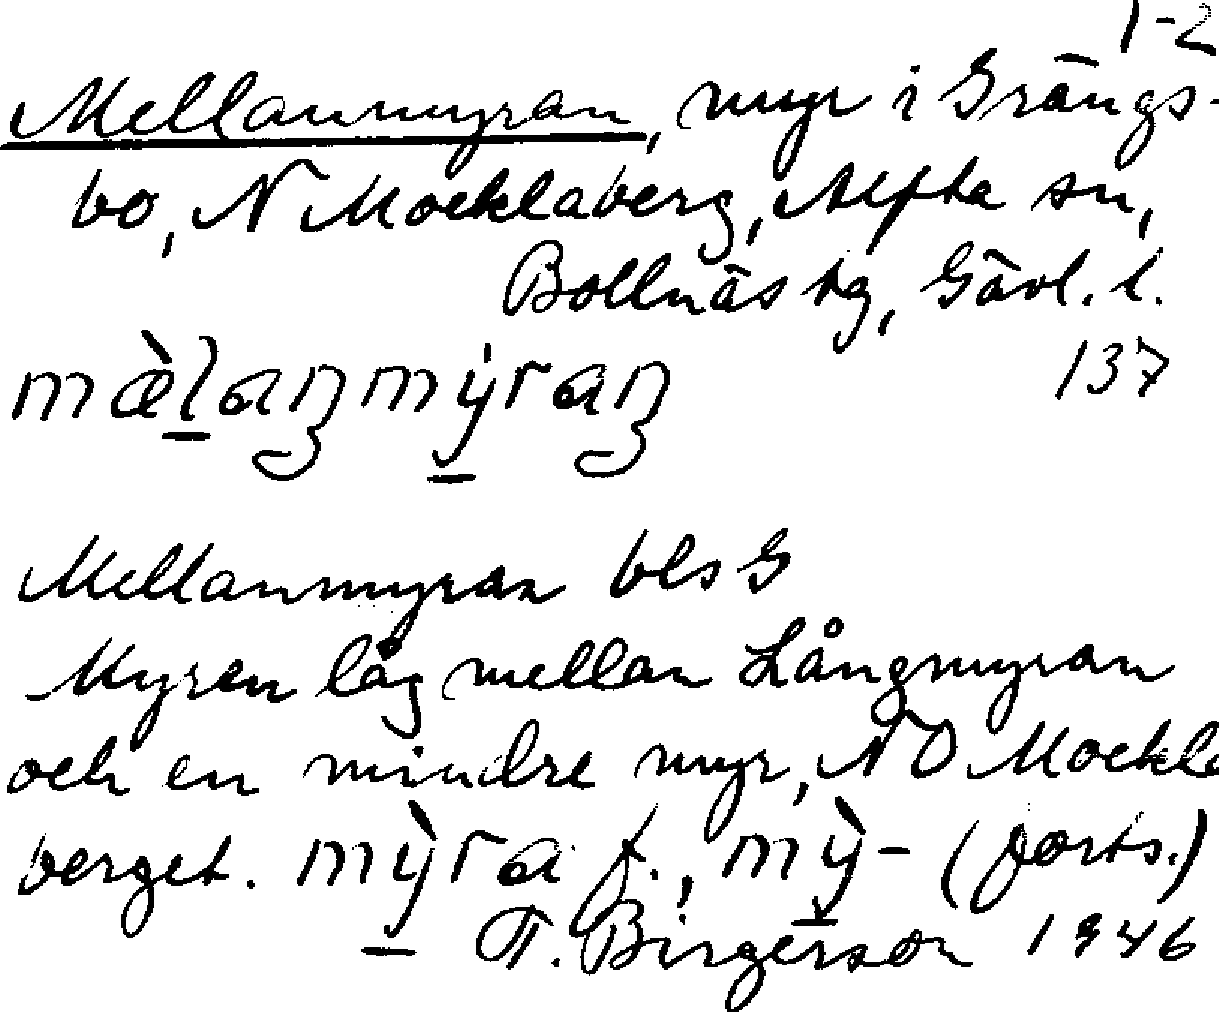 1-2
Mellanmyran, myr i Grängs-
bo, N Mocklaberg, Alfta sn,
Bollnäs tg, Gävl. l.
137
mæ̀l̠aŋmý̠raŋ
Mellanmyran bls G
Myren låg mellan Långmyran
och en mindre myr, NO Mockla
berget. mỳ̠ra f., mỳ̠- (forts.)
T. Birgerson 1946